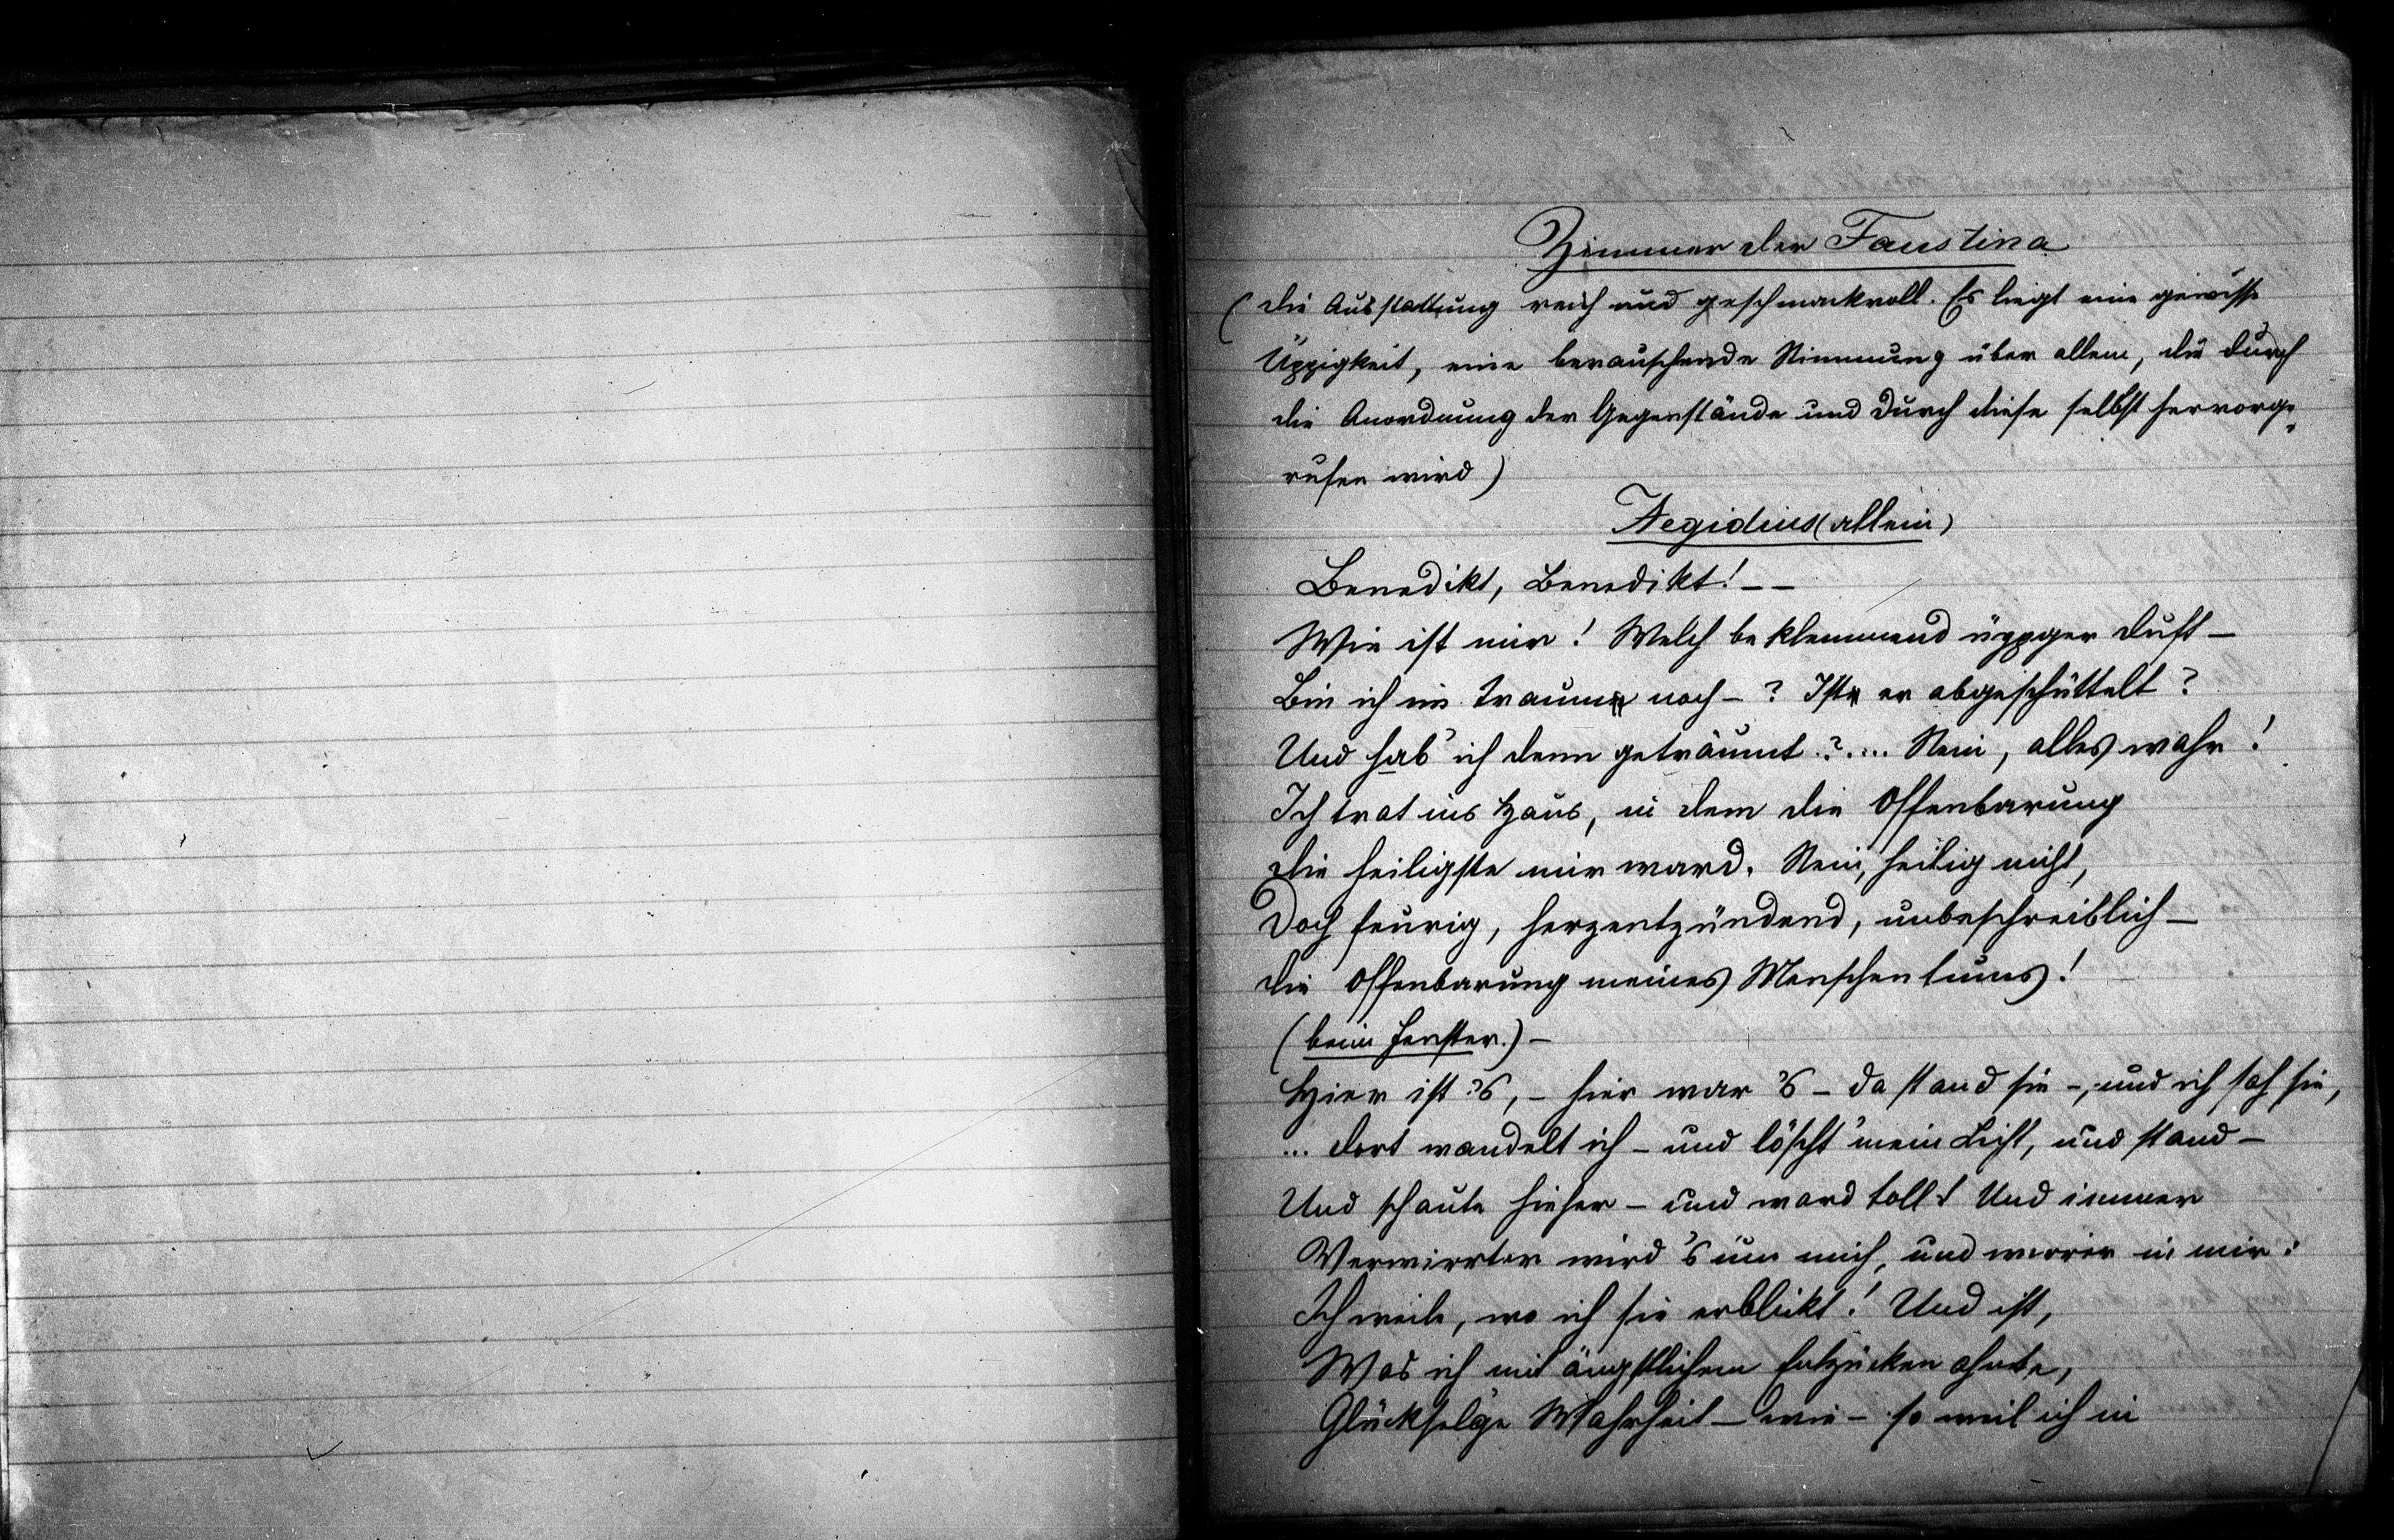 Zimmer der Faustina
(Die Ausstattung reich und geschmackvoll. Es liegt eine gewisse
Üppigkeit, eine berauschende Stimmung über allem, die durch
die Anordnung der Gegenstände und durch diese selbst hervorge„
rufen wird)
Aegidius (allein)
Benedikt, Benedikt! – –
Wie ist mir! Welch beklemmend üppger Duft –
Bin ich im Traum noch – ? Ist er abgeschüttelt?
Und hab' ich denn geträumt?.... Nein, alles wahr!
Ich trat ins Haus, in dem die Offenbarung
Die heiligste mir ward. Nein, heilig nicht,
Doch feurig, herzentzündend, unbeschreiblich –
Die Offenbarung meines Menschentums!
(beim Fenster.) –
Hier ist 's, – hier war 's – da stand sie –, und ich sah sie,
... Dort wandelt ich – und löscht' mein Licht, und stand –
Und schaute hieher – und ward toll! Und immer
Verwirrter wird 's um mich, und wirrer in mir:
Ich weile, wo ich sie erblickt! Und ist,
Was ich mit ängstlichem Entzücken ahnte,
Glückselge Wahrheit – wie – so weil ich in